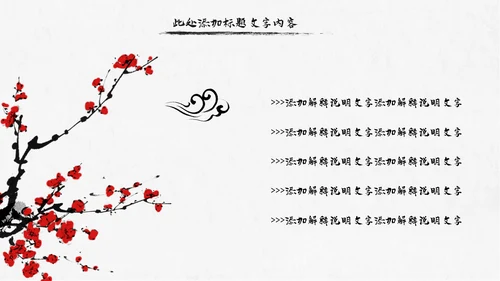 此处添加标题文字内容
>>>添加解释说明文字添加解释说明文字
>>>添加解释说明文字添加解释说明文字
>>>添加解释说明文字添加解释说明文字
>>>添加解释说明文字添加解释说明文字
>>>添加解释说明文字添加解释说明文字